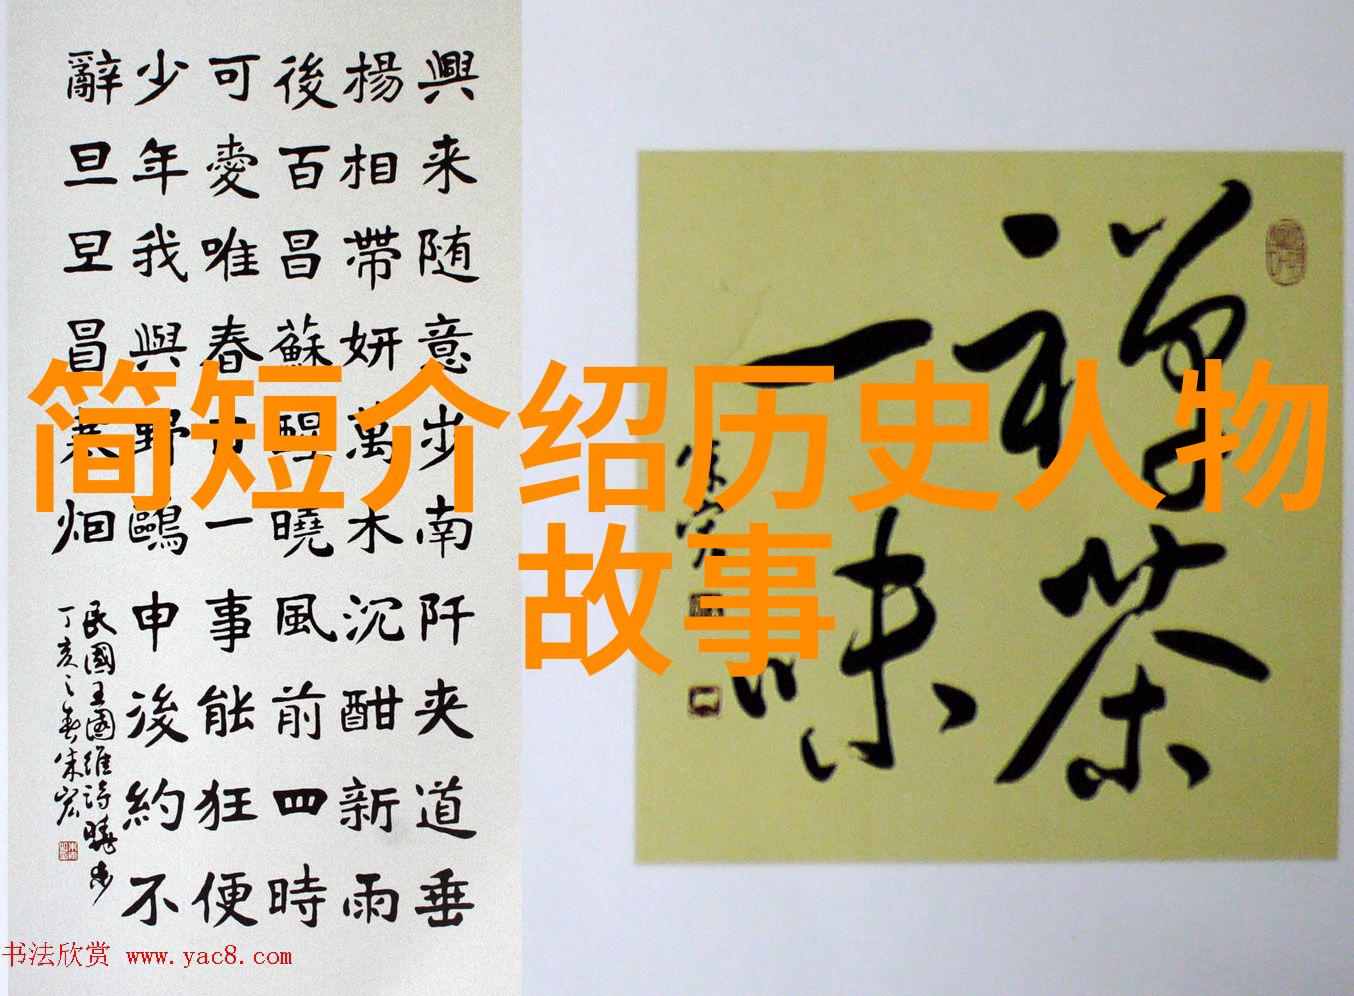 興来随意步南阡夹道垂
楊相帶妍萬木沉酣新雨
後百昌蘇醒曉風前四時
可愛唯春日一事能狂便
少年我與野鷗申後約不
辭旦旦冒寒烟
民國王國維詩曉步
丁亥之春朱宏
禅茶
一味
朱宏
简短介绍历史人物
故事
书法欣赏 www.yac8.com